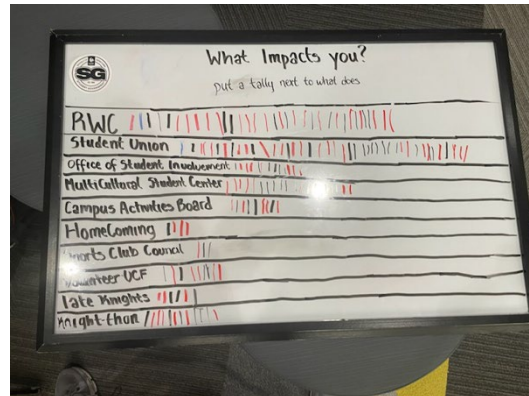 What Impacts you?
SG
put a tally next to what does
RWC
Student Union
Office of Student Involvement
MultiCultural Student Center
Campus Activities Board
HomeComing
Sports Club Council
Volunteer UCF
Late Knights
Knight-thon